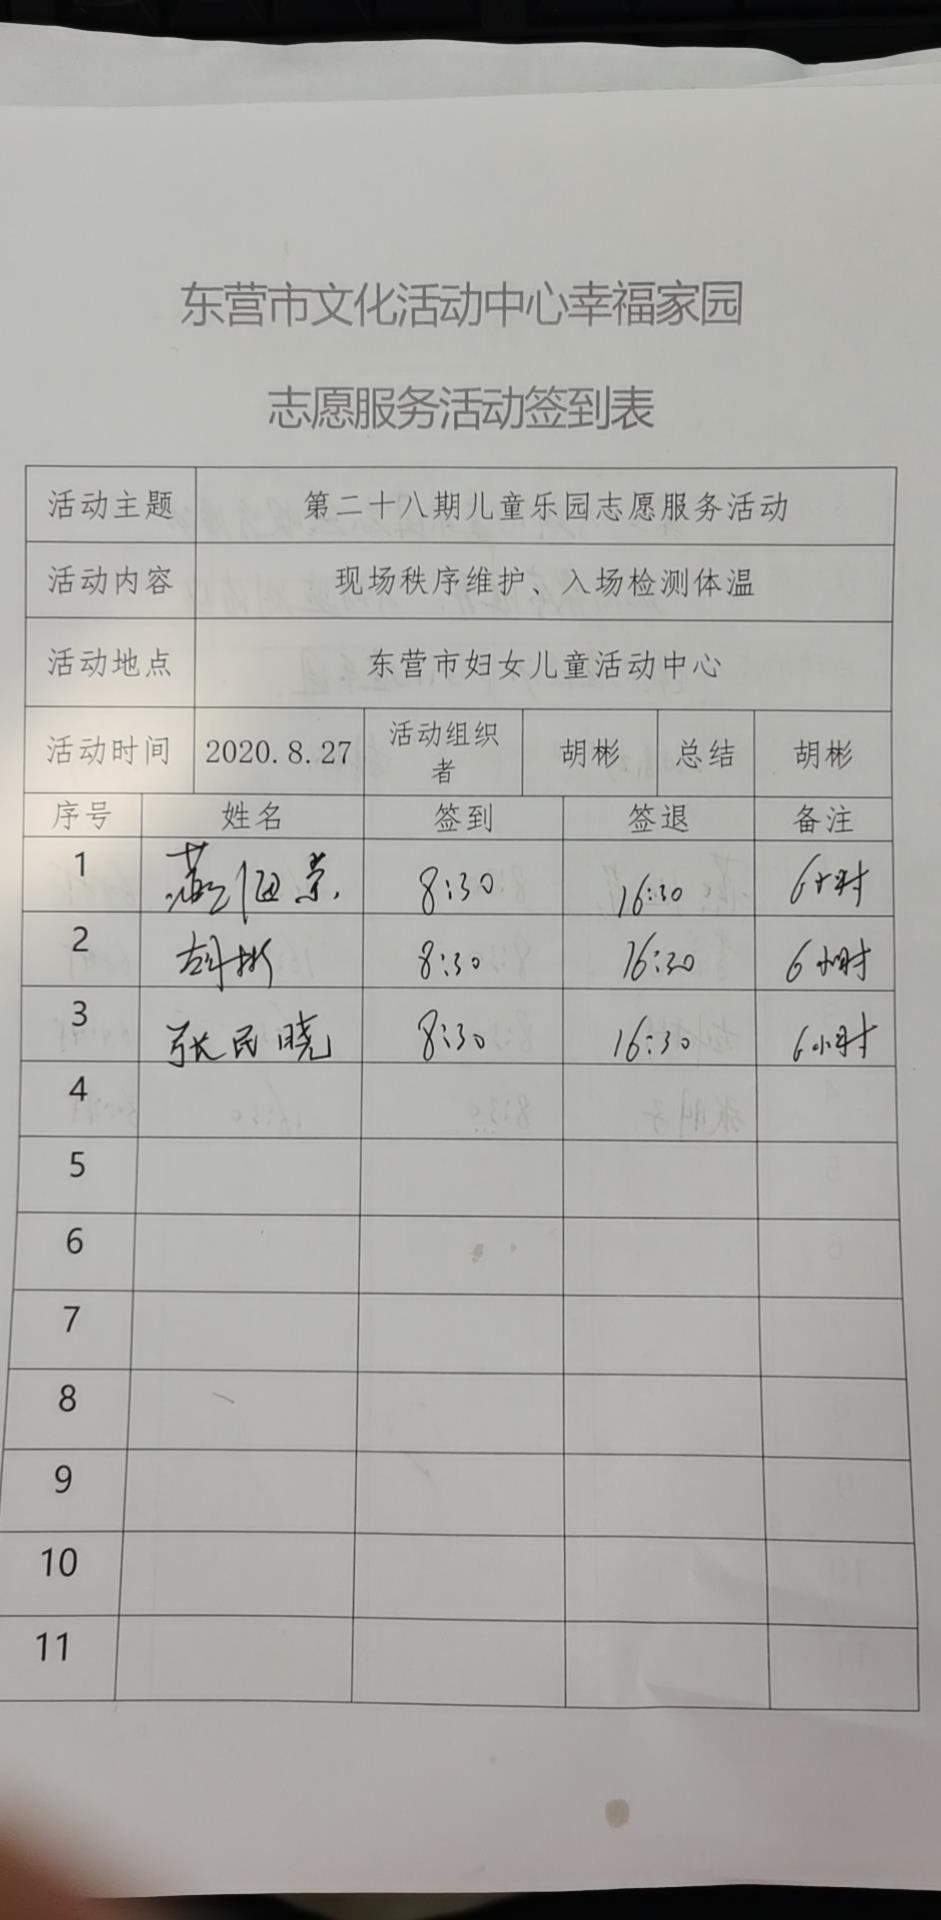 东营市文化活动中心幸福家园
志愿服务活动签到表
活动主题 第二十八期儿童乐园志愿服务活动
活动内容 现场秩序维护、入场检测体温
活动地点 东营市妇女儿童活动中心
活动时间 2020.8.27 活动组织者 胡彬 总结 胡彬
序号 姓名 签到 签退 备注
1 8:30 16:30 6小时
2 胡彬 8:30 16:30 6小时
3 张民晓 8:30 16:30 6小时
4
5
6
7
8
9
10
11